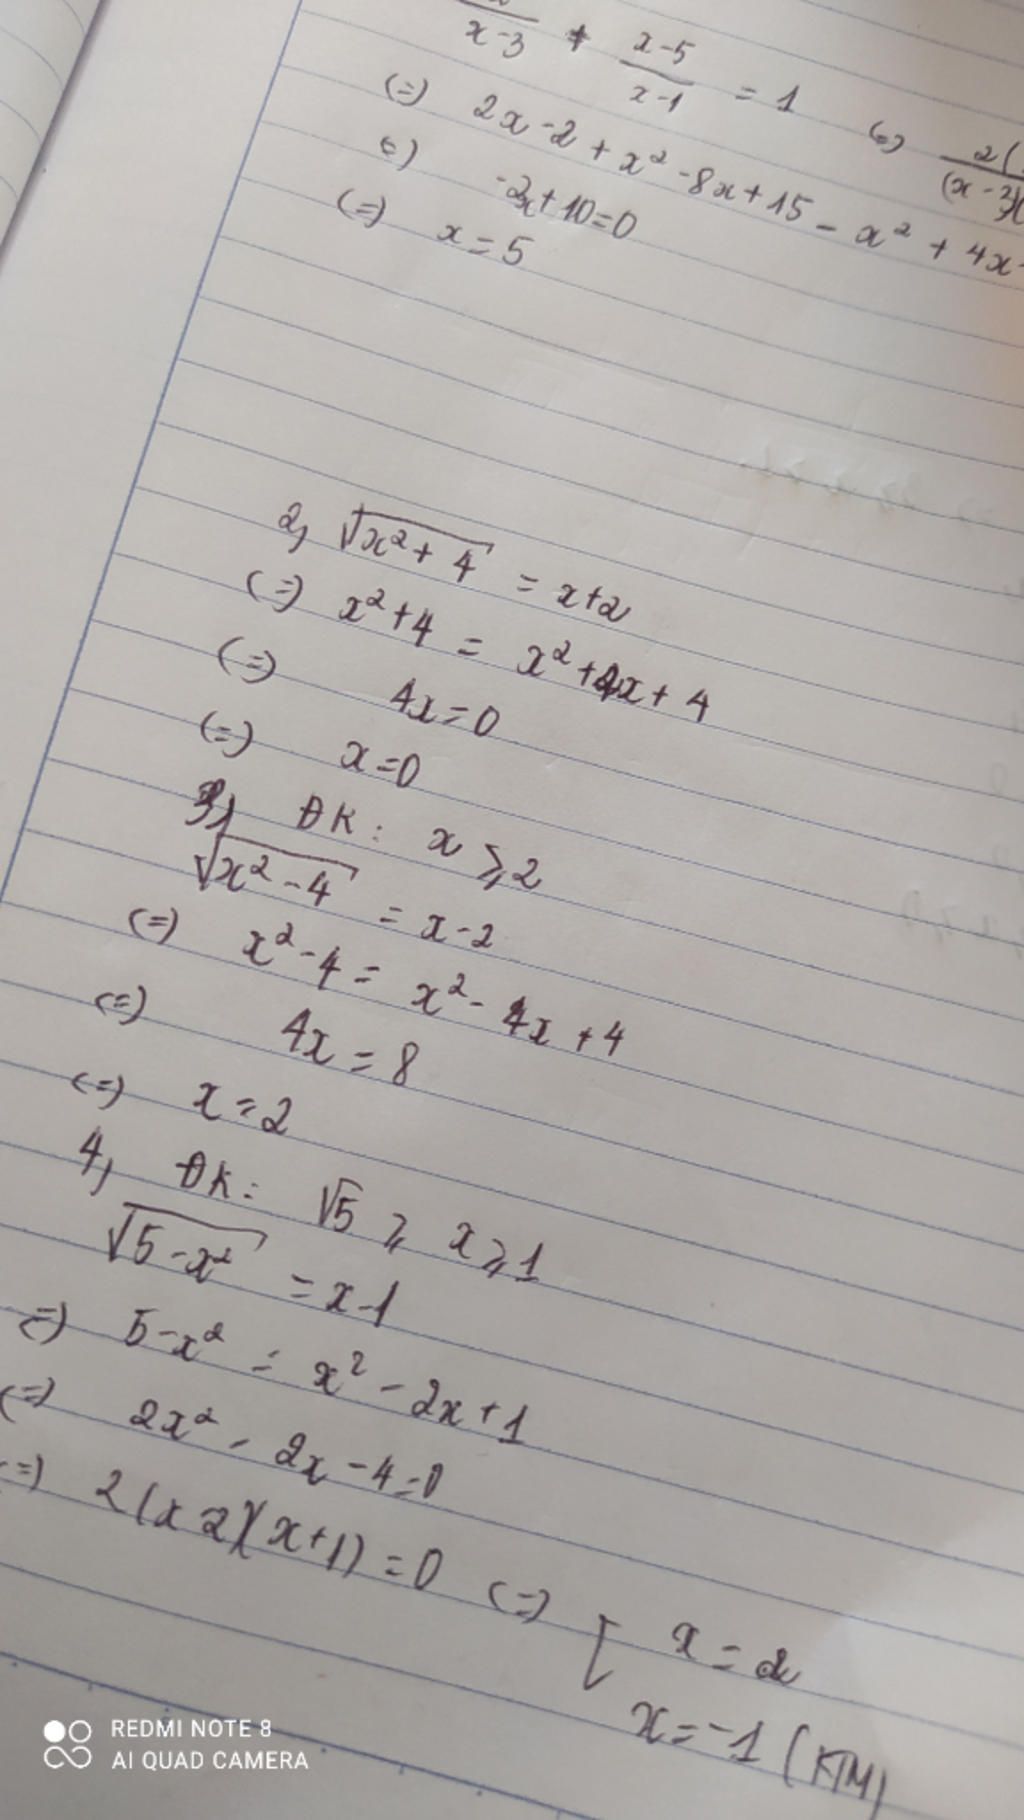 x-3 + x-5/x-1 = 1 (=) 2(/(x-3)(
(=) 2x-2 + x² -8x+15 - x² + 4x-
(=) -2x+10=0
(=) x=5
2, √x²+4 = x+2
(=) x²+4 = x²+4x+4
(=) 4x=0
(=) x=0
3, ĐK: x ≥ 2
√x²-4 = x-2
(=) x²-4 = x²-4x+4
(=) 4x=8
(=) x=2
4, ĐK: √5 ≥ x ≥ 1
√5-x² = x-1
(=) 5-x² = x²-2x+1
(=) 2x²-2x-4=0
(=) 2(x-2)(x+1)=0 (=) [ x=2
x=-1 (KTM)
REDMI NOTE 8
AI QUAD CAMERA